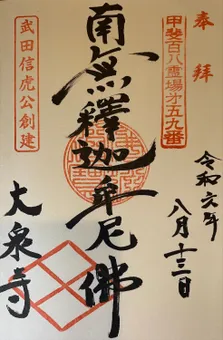 奉拝
甲斐百八霊場第五九番
令和六年
八月十三日
南無釋迦牟尼佛
武田信虎公創建
大泉寺